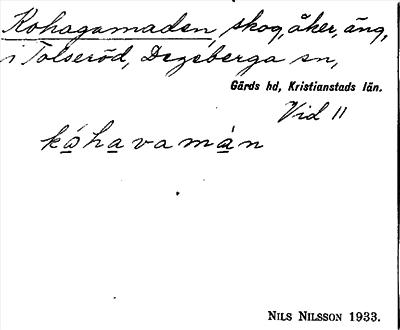 Kohagamaden, skog, åker, äng,
i Tolseröd, Degeberga sn,
Gärds hd, Kristianstads län.
Vid 11
kóhavamàn
NILS NILSSON 1933.